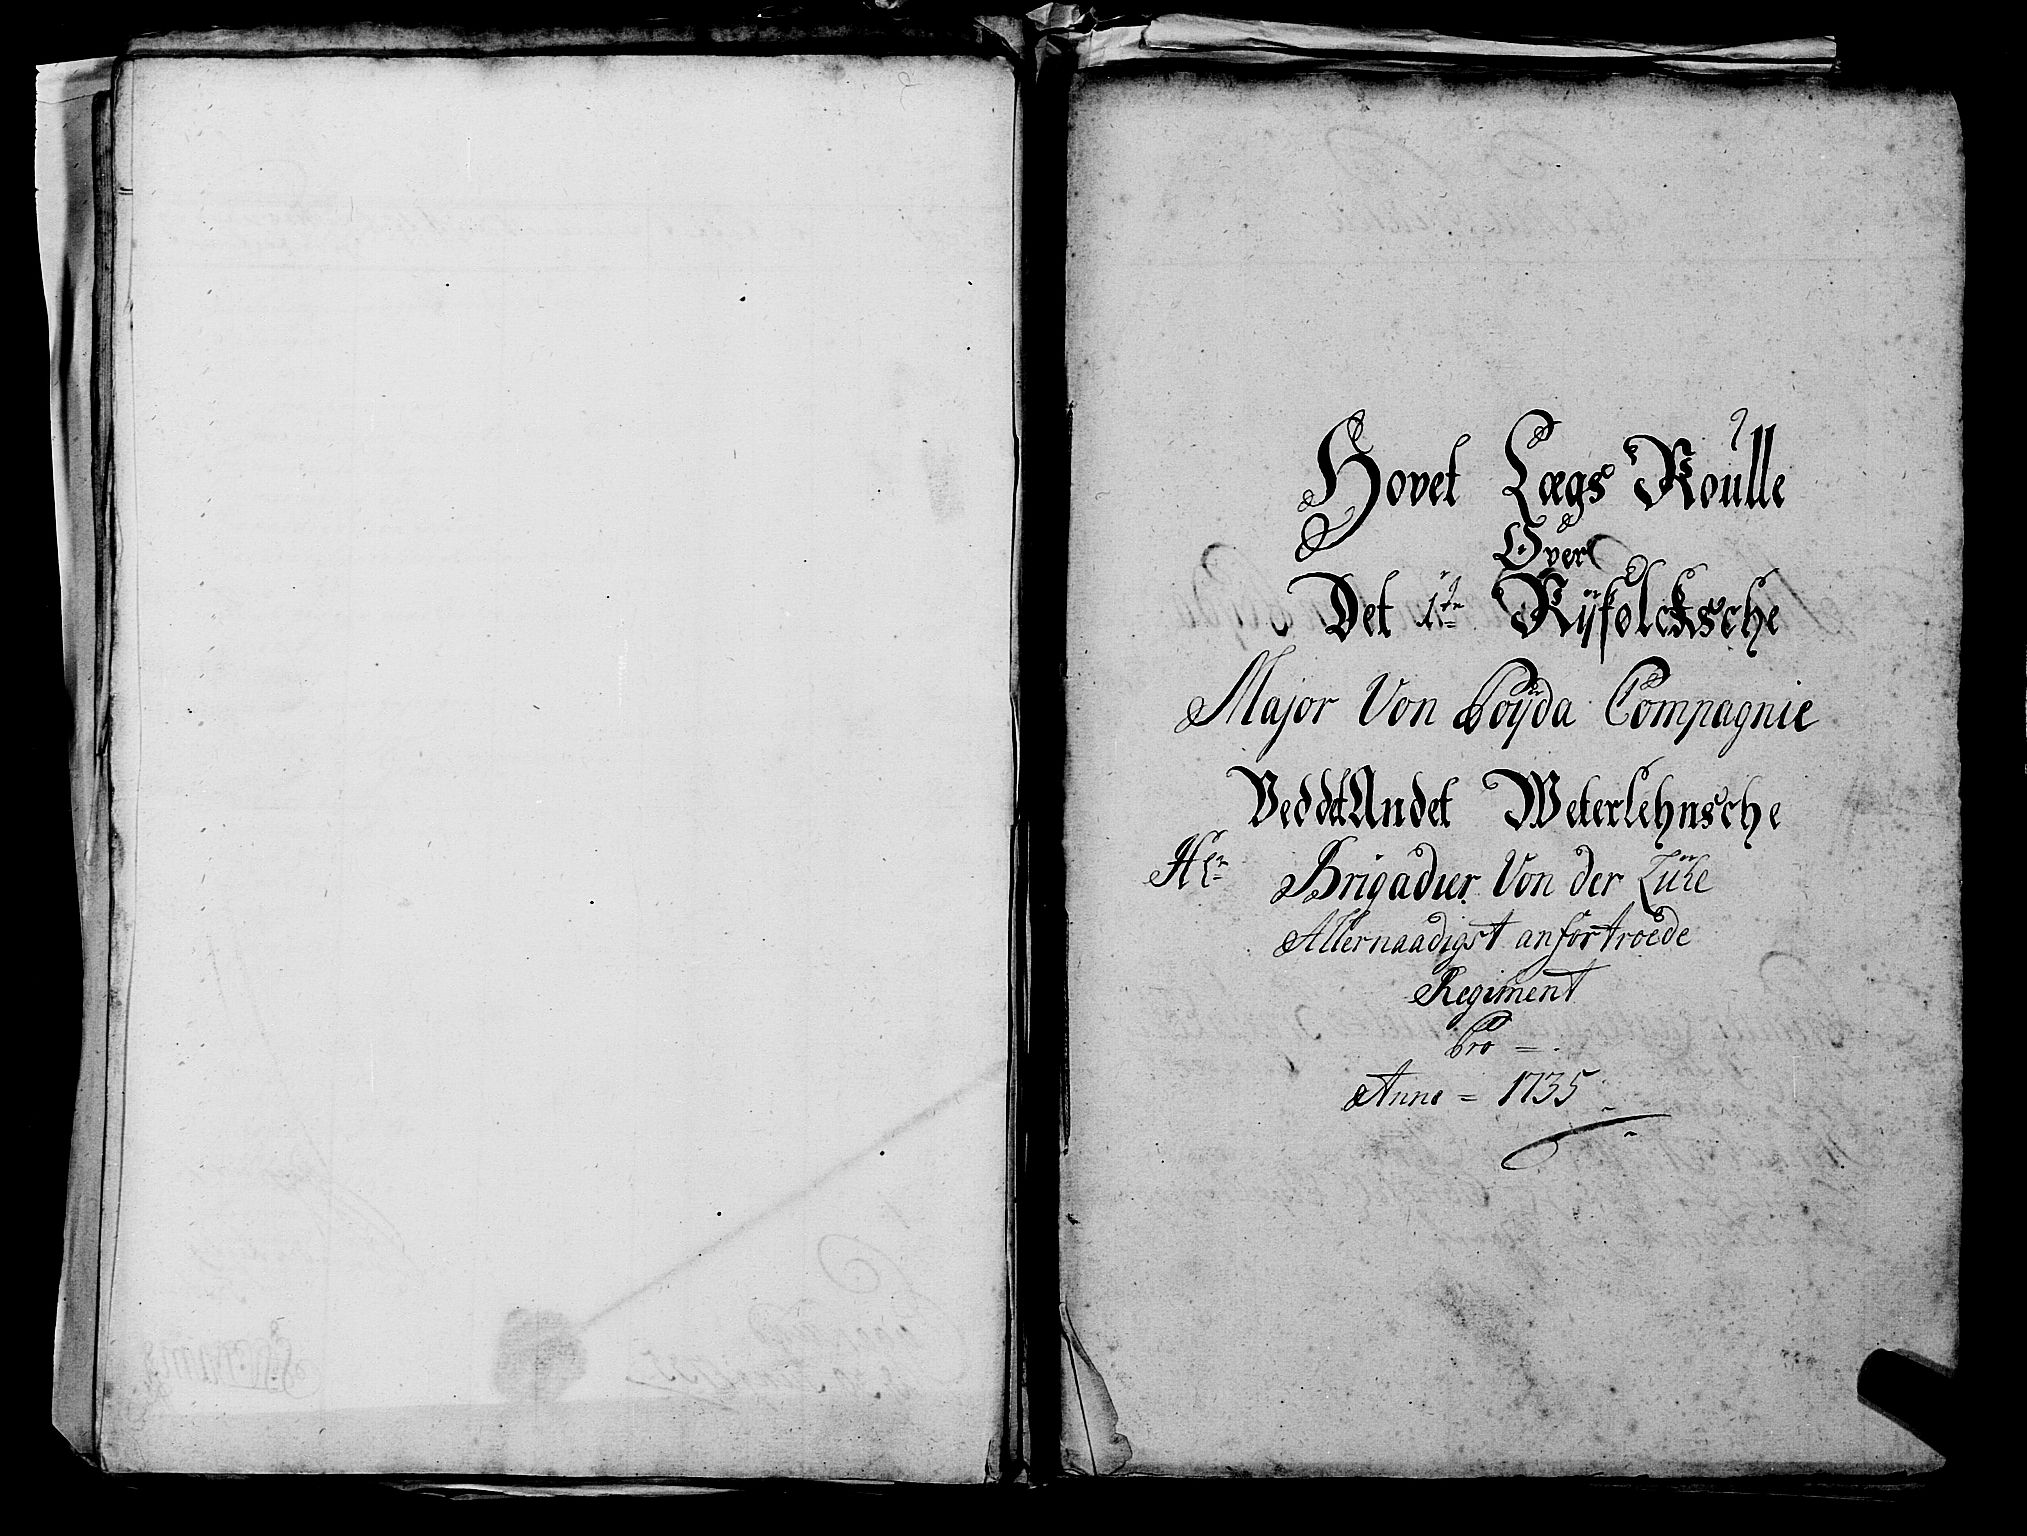 Hovet Lægs Roulle
Over
Det 1te Ryfølcksche
Major Von Pøyda Compagnie
Ved det Andet Weterlehnsche
Hr Brigadier Von der Lühe
Allernaadigst anfortroede
Regiment
Pro
Anno = 1735